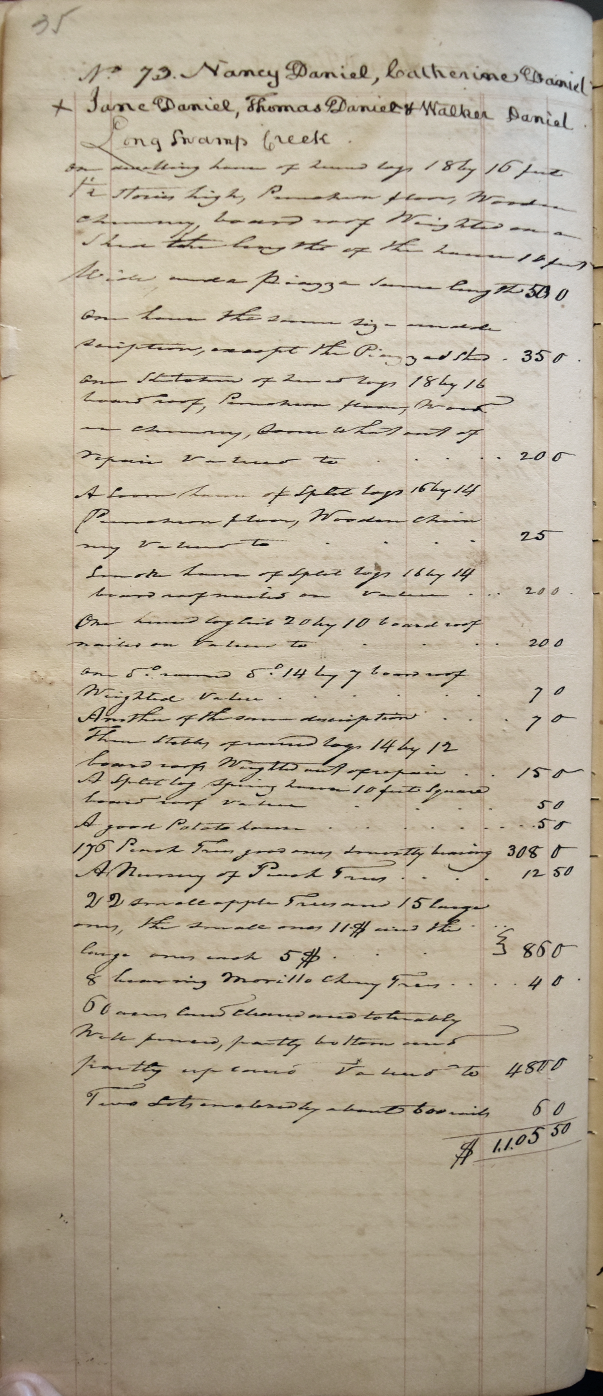 35
No 73. Nancy Daniel, Catherine Daniel
+ Jane Daniel, Thomas Daniel & Walker Daniel
Long Swamp Creek.
One dwelling house of hewed logs 18 by 16 feet
1½ stories high, Puncheon floor, Wooden
chimney, board roof Weighted on a
Shed the length of the house 10 feet
Wide and a Piazza same length 50 0
One house the same size and de
scription, except the Piazza & Shed . 35 0 .
One Kitchen of hewed logs 18 by 16
board roof, Puncheon floor, Wood
en chimney, Some what out of
repair Valued to . . . . . 20 0
A Loom house of Split logs 16 by 14
Puncheon floor, Wooden Chim
ney Valued to . . . . . 25
Smoke house of Split logs 16 by 14
board roof nailed on Value . . . 20 0 .
One hewed log Crib 20 by 10 board roof
nailed on Valued to . . . . . 20 0
One Do round Do 14 by 7 board roof
Weighted Value . . . . . . 7 0
Another of the same description . . . 7 0
Three Stables of round logs 14 by 12
board roofs Weighted out of repair . . . 15 0
A Split log Spring house 10 feet Square
board roof Value . . . . . 5 0
A good Potato house . . . . . . 5 0
176 Peach Trees good ones & mostly bearing 308 0
A Nursery of Peach Trees . . . . 12 50
22 small apple Trees and 15 large
ones, the small ones 11$ and the
large ones each 5$ . . . . } 86 0
8 bearing Morillo Cherry Trees . . . . 4 0 .
60 acres land cleared and tolerably
Well fenced, partly bottom and
partly up land Valued to 480 0
Two Lots enclosed by about 600 rails 6 0
$ 1105 50